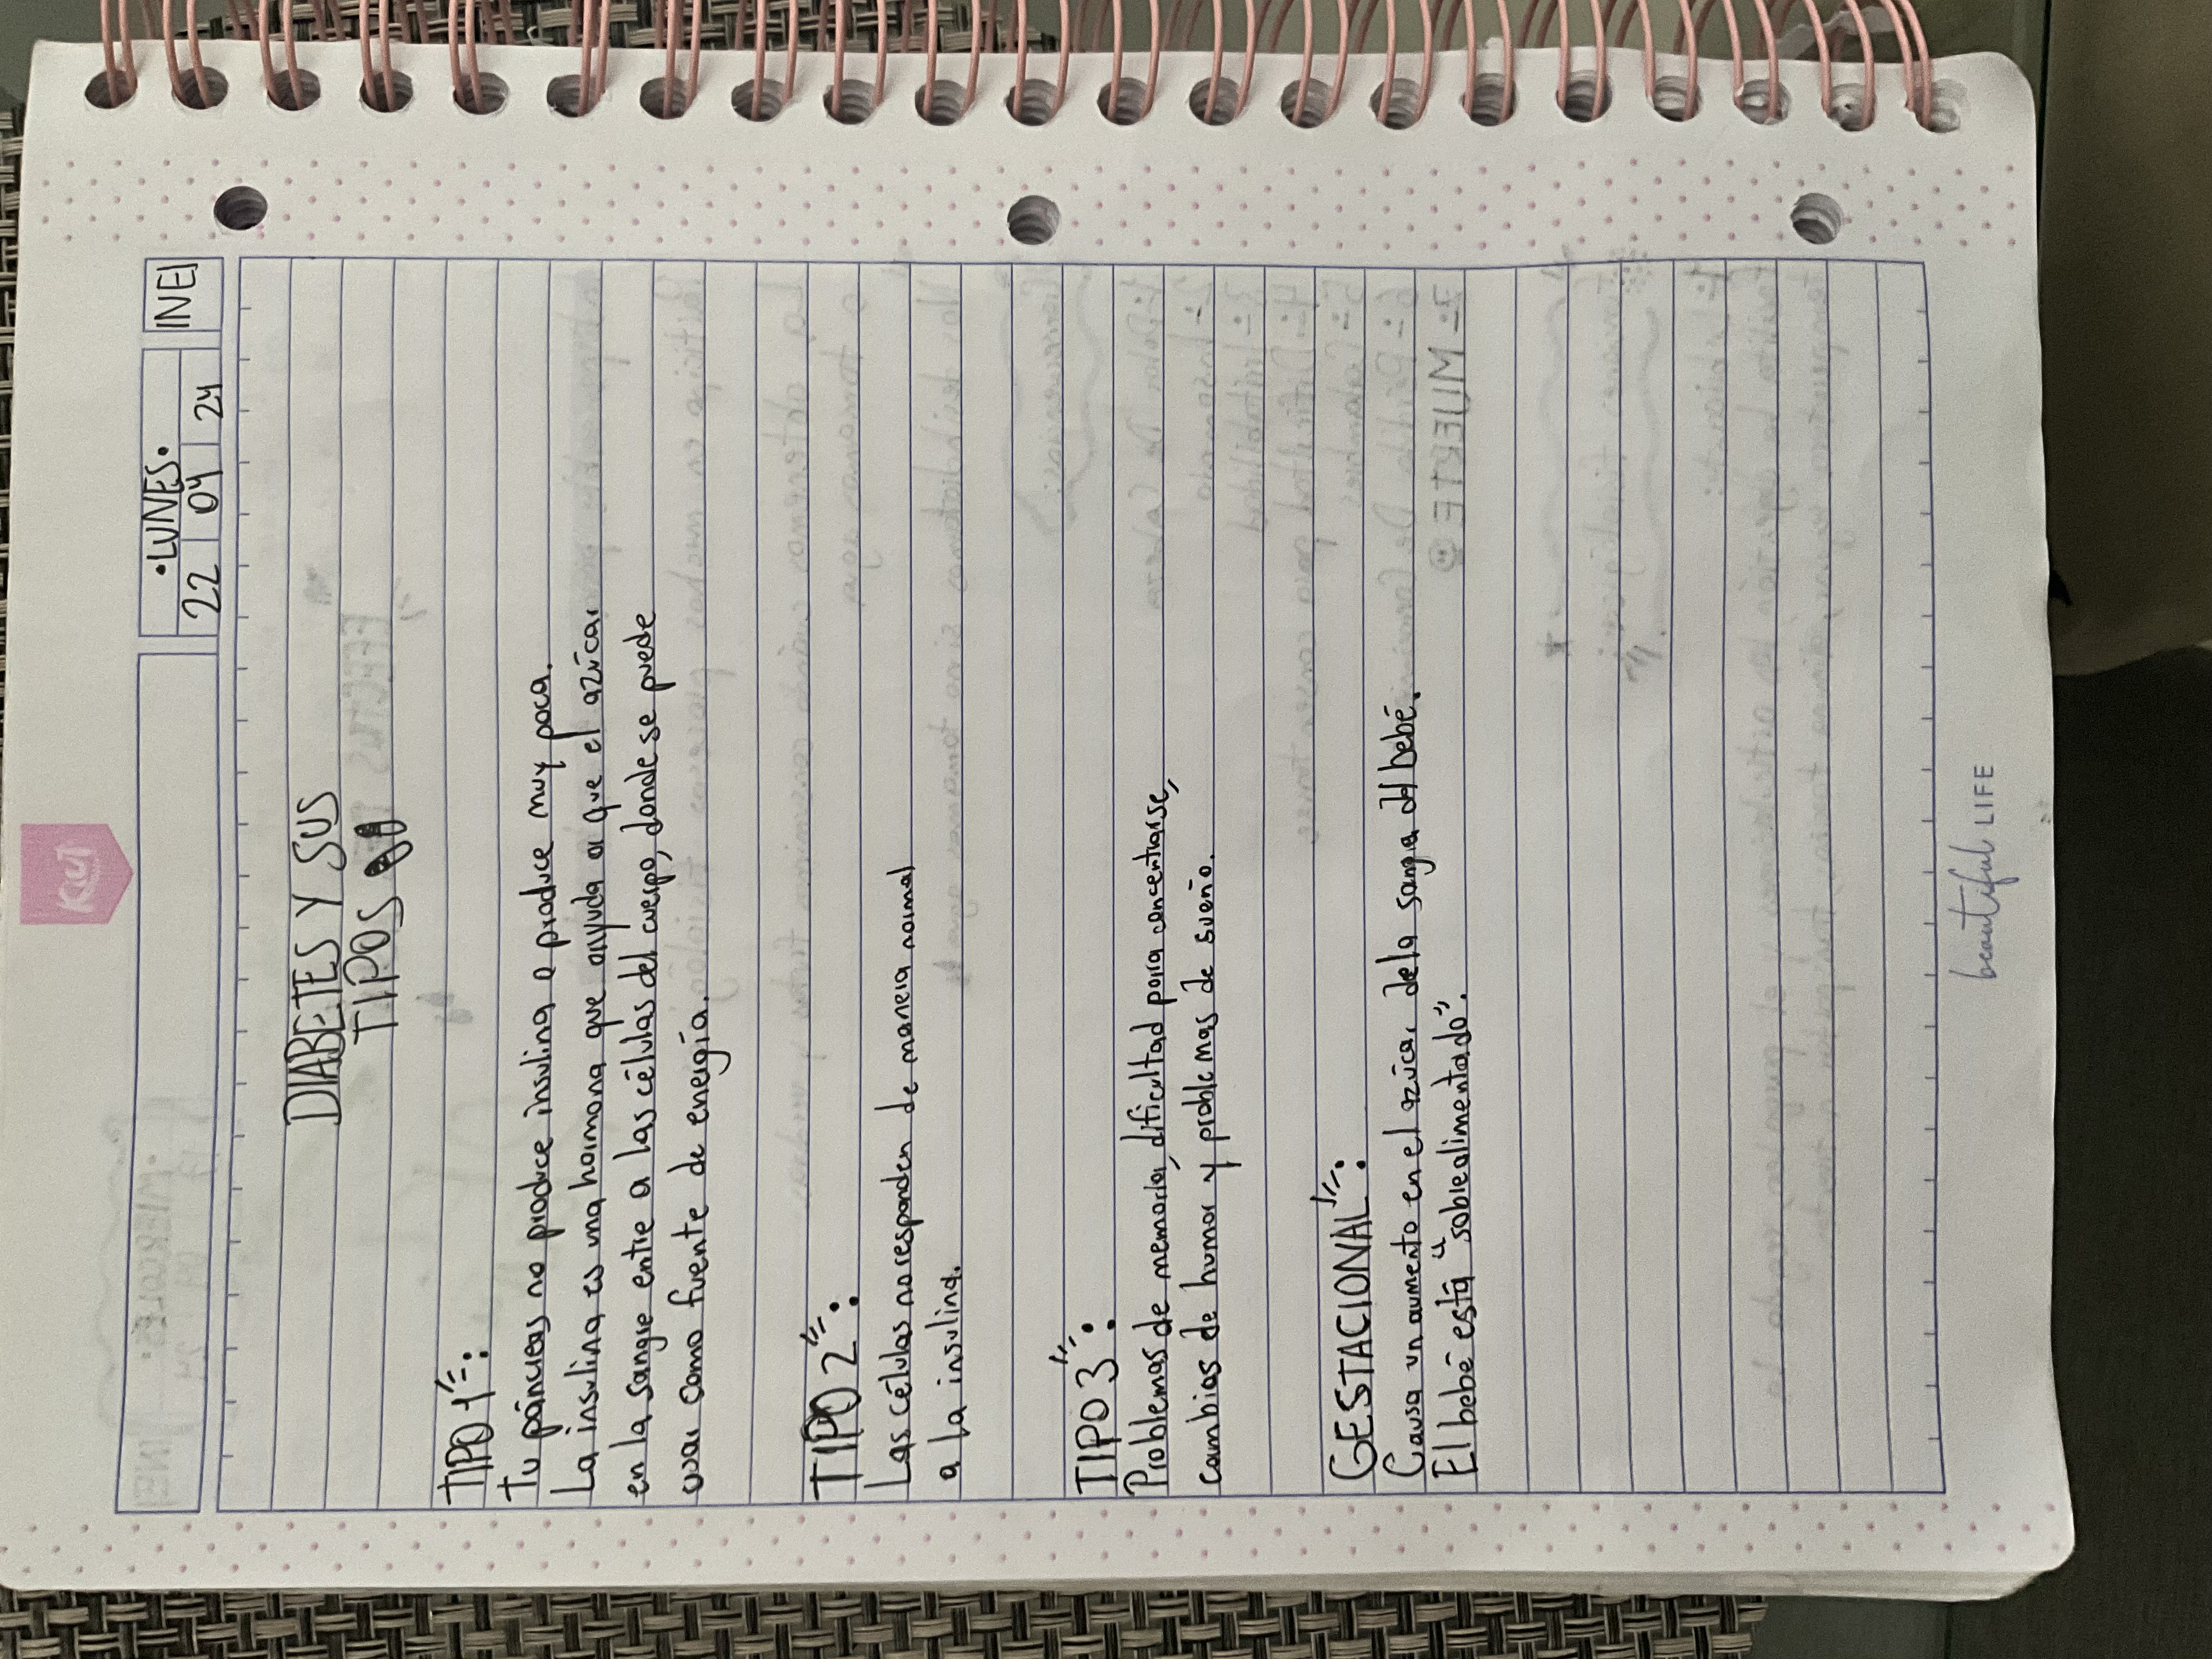 KIUT
•LUNES•
22 04 24
INEI
DIABETES Y SUS
TIPOS
TIPO 1:
Tu páncreas no produce insulina o produce muy poca.
La insulina es una hormona que ayuda a que el azúcar
en la sangre entre a las células del cuerpo, donde se puede
usar como fuente de energía.
TIPO 2:
Las células no responden de manera normal
a la insulina.
TIPO 3:
Problemas de memoria, dificultad para concentrarse,
cambios de humor y problemas de sueño.
GESTACIONAL:
Causa un aumento en el azúcar de la sangre del bebé.
El bebé está "sobrealimentado".
beautiful LIFE